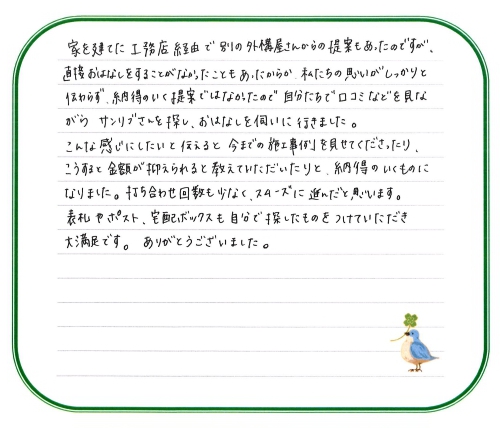 家を建てた工務店経由で別の外構屋さんからの提案もあったのですが、
直接おはなしをすることがなかったこともあったからか、私たちの思いがしっかりと
伝わらず、納得のいく提案ではなかったので自分たちで口コミなどを見な
がら サンリブさんを探し、おはなしを伺いに行きました。
こんな感じにしたいと伝えると 今までの施工事例を見せてくださったり、
こうすると金額が抑えられると教えていただいたりと、納得のいくものに
なりました。打ち合わせ回数も少なく、スムーズに進んだと思います。
表札やポスト、宅配ボックスも自分で探したものをつけていただき
大満足です。 ありがとうございました。